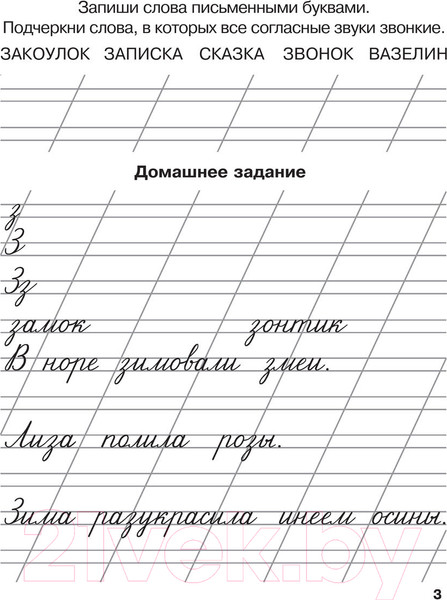 Запиши слова письменными буквами.
Подчеркни слова, в которых все согласные звуки звонкие.
ЗАКОУЛОК ЗАПИСКА СКАЗКА ЗВОНОК ВАЗЕЛИН
Домашнее задание
з
З
Зз
замок зонтик
В норе зимовали змеи.
Лиза полила розы.
Зима разукрасила инеем осины.
21vek.by
3